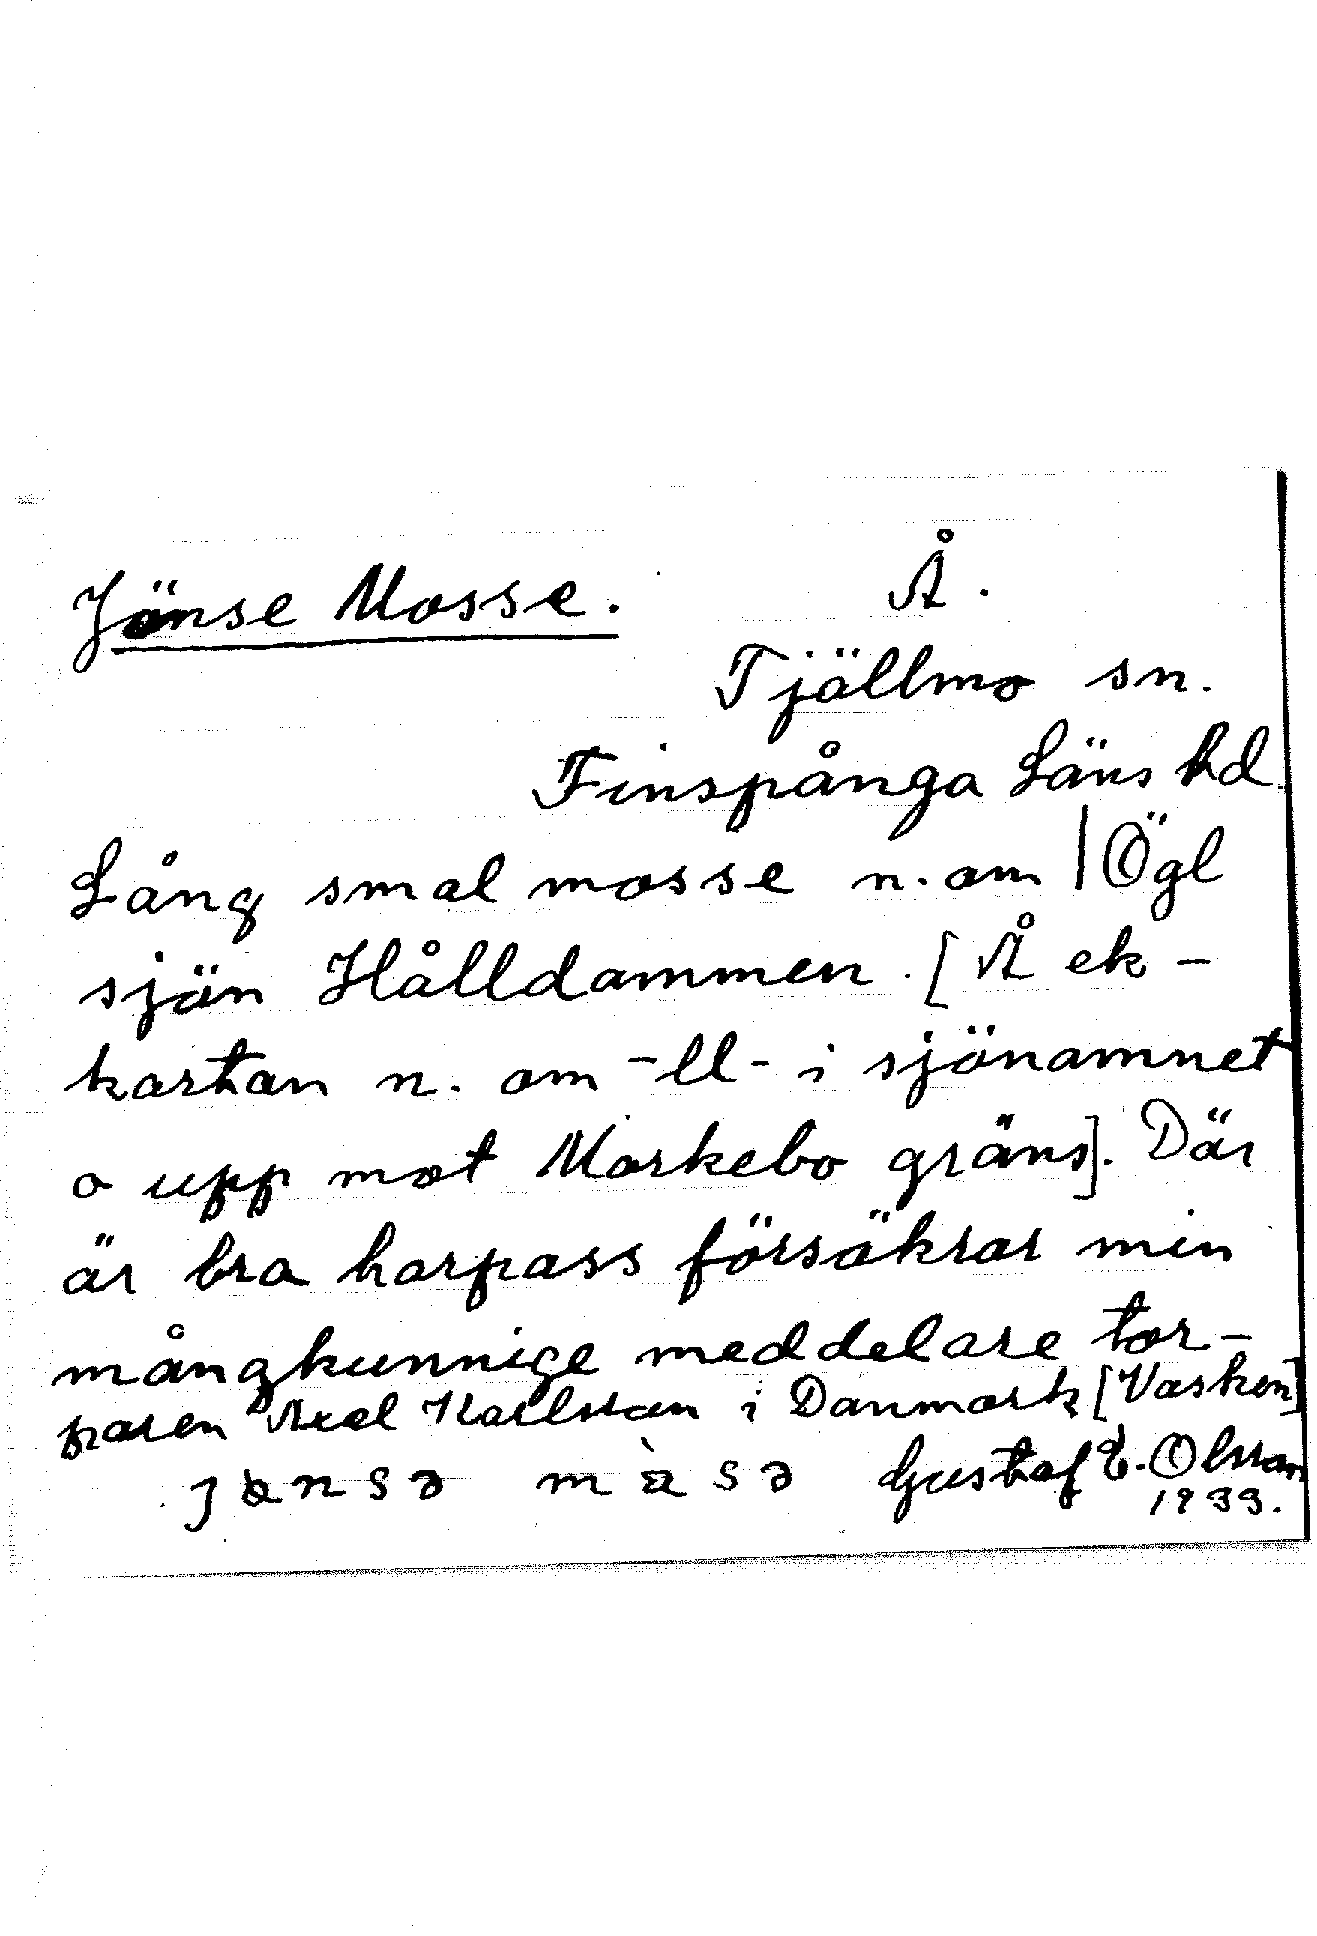 Jönse Mosse. Å.
Tjällmo sn.
Finspånga Läns hd
Lång smal mosse n. om | Ögl
sjön Hålldammen. [Å ek-
kartan n. om -ll- i sjönamnet
o upp mot Morkebo gräns]. Där
är bra harpass försäkrar min
mångkunnige meddelare tor-
paren Axel Karlsson i Danmark [Vasken]
Gustaf E. Olsson
1933.